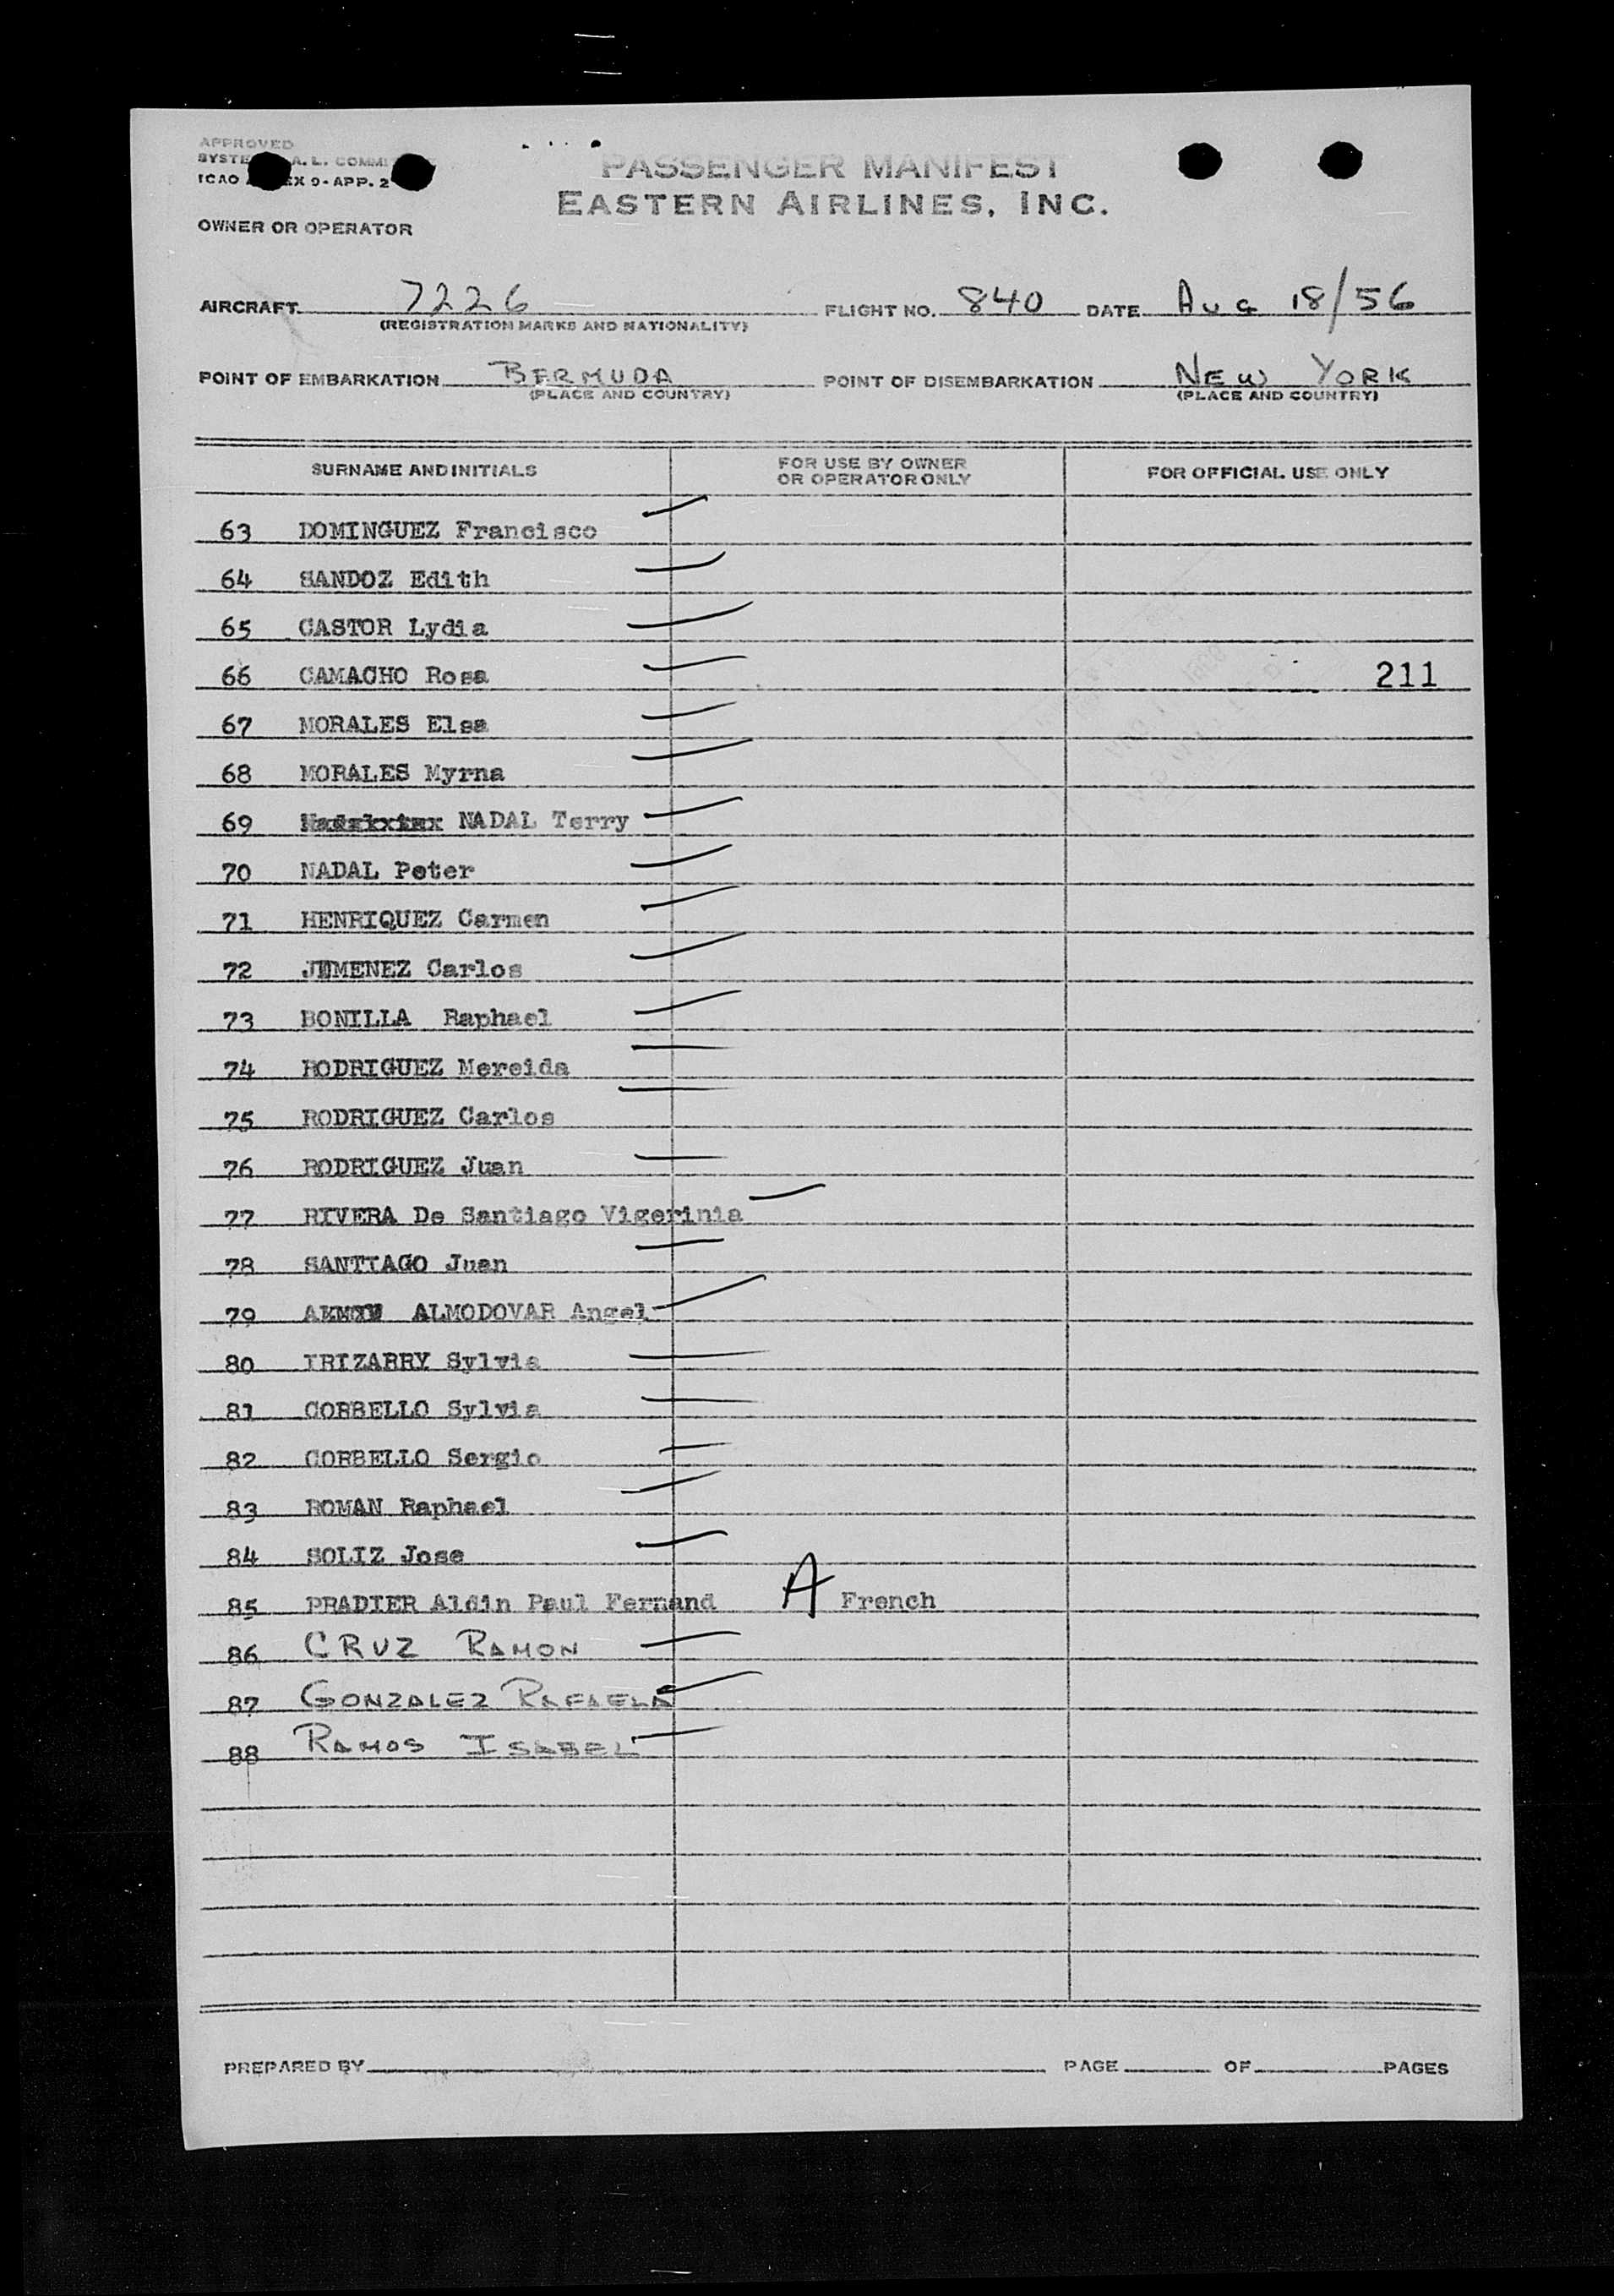 APPROVED
A. L.
ICAO
PASSENGER MANIFEST
EASTERN AIRLINES, INC.
OWNER OR OPERATOR
AIRCRAFT 7226 FLIGHT NO. 840 DATE AUG 18/56
(REGISTRATION MARKS AND NATIONALITY)
POINT OF EMBARKATION BERMUDA POINT OF DISEMBARKATION NEW YORK
(PLACE AND COUNTRY) (PLACE AND COUNTRY)
SURNAME AND INITIALS FOR USE BY OWNER OR OPERATOR ONLY FOR OFFICIAL USE ONLY
63 DOMINGUEZ Francisco
64 SANDOZ Edith
65 CASTOR Lydia
66 CAMACHO Rosa 211
67 MORALES Elsa
68 MORALES Myrna
69 NADAL Terry
70 NADAL Peter
71 HENRIQUEZ Carmen
72 JIMENEZ Carlos
73 BONILLA Raphael
74 RODRIGUEZ Mereida
75 RODRIGUEZ Carlos
76 RODRIGUEZ Juan
77 RIVERA De Santiago Vigerinia
78 SANTIAGO Juan
79 ALMODOVAR Angel
80 IRIZARRY Sylvia
81 CORBELLO Sylvia
82 CORBELLO Sergio
83 ROMAN Raphael
84 SOLIZ Jose
85 PRADIER Aldin Paul Fernand A French
86 CRUZ RAMON
87 GONZALEZ RAFAELA
88 RAMOS ISABEL
PREPARED BY PAGE OF PAGES